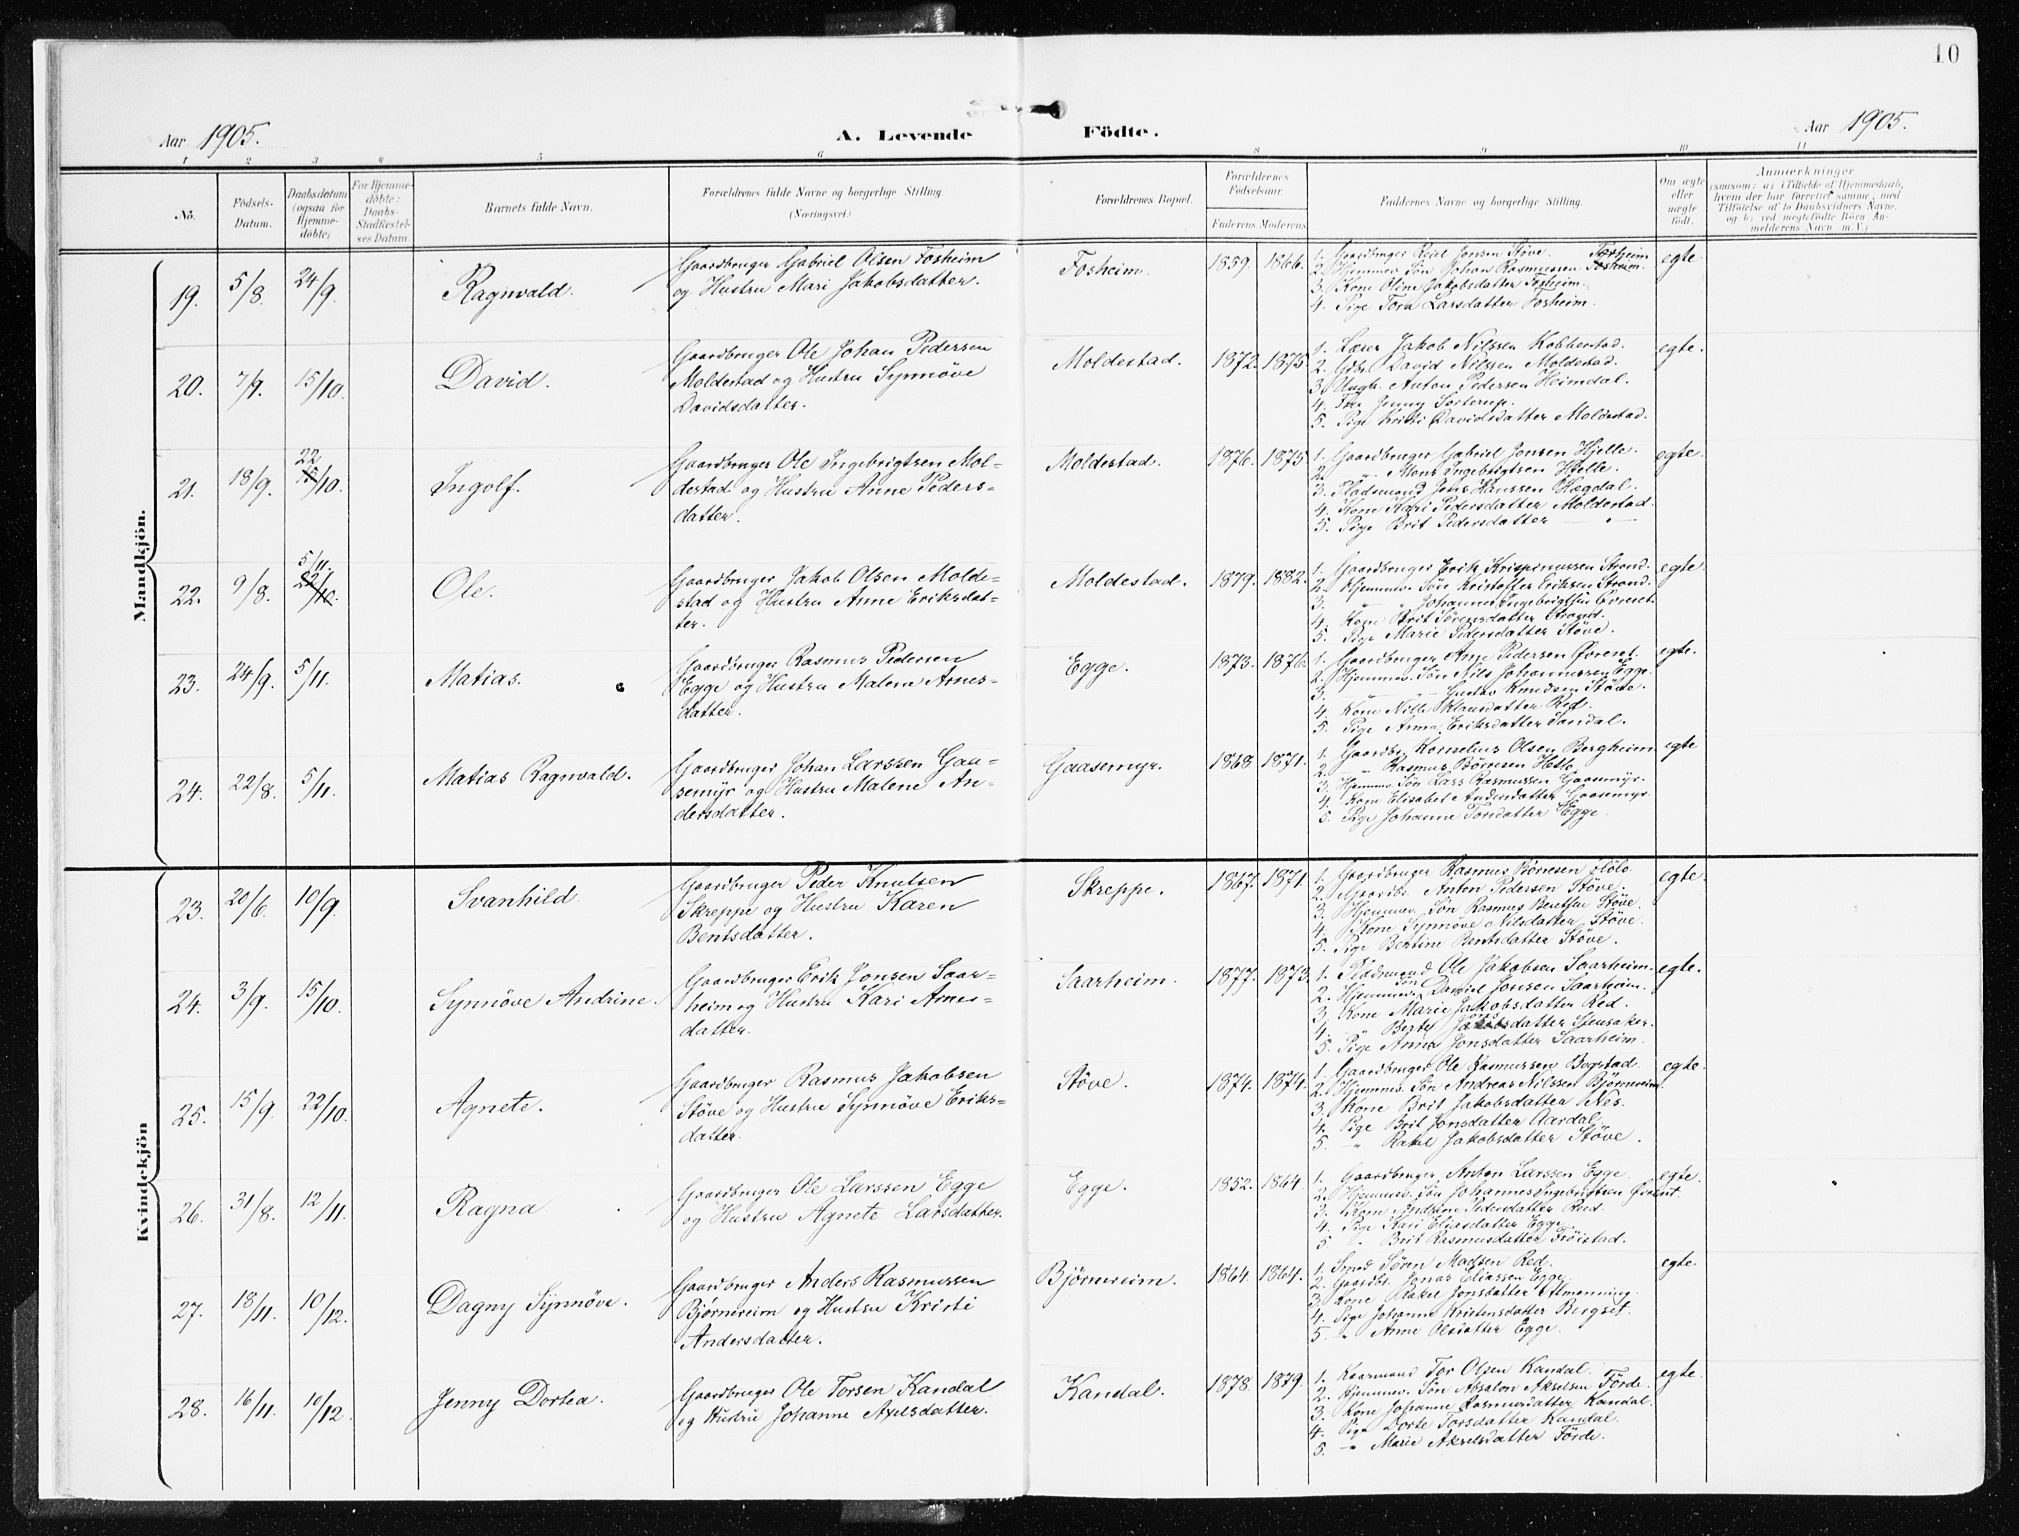 10
Aar 1905. A. Levende Födte. Aar 1905.
1 2 3 4 5 6 8 9 10 11
No. Födsels-Datum. Daabsdatum (ogsaa for Hjemme-döbte) For Hjemme-döbte: Daabs-Stadfæstel-ses Datum Barnets fulde Navn. Forældrenes fulde Navne og borgerlige Stilling. (Næringsvei.) Forældrenes Bopæl. Forældrenes Födselsaar. Faderens. Moderens. Faddernes Navne og borgerlige Stilling. Om ægte eller uægte födt. Anmærkninger (saasom: a) i Tilfælde af Hjemmedaab, hvem der har forrettet samme, med Tilföielse af to Daabsvidners Navne, og b) ved uegtefödte Börn An-melderens Navn m.V.)
Mandkjön.
19. 5/8 24/9. Ragnvald.
Gaardbruger Gabriel Olsen Fosheim
og Hustru Mari Jakobsdatter.
Fosheim. 1859. 1866. egte
1. Gaardbruger Jonsen Støve.
2. Hjemmev. Søn Johan Rasmussen Fosheim.
3. Kone Oline Jakobsdatter Fosheim.
4. Pige Tora Larsdatter Fosheim.
20. 7/9. 15/10. David.
Gaardbruger Ole Johan Pedersen
Moldestad og Hustru Synnøve
Davidsdatter.
Moldestad. 1872. 1875. egte.
1. Lærer Jakob Nilssen Kobberstad.
2. Gbr. David Nilssen Moldestad.
3. Ungk. Anton Pedersen Heimdal.
4. Frk. Jenny Sorterup.
5. Pige Kristi Davidsdatter Moldestad.
21. 18/9. 22 15/10. Ingolf.
Gaardbruger Ole Ingebrigtsen Mol-
destad og Hustru Anne Peders-
datter.
Moldestad. 1876. 1875 egte.
1. Gaardbruger Gabriel Jonsen Hjelle.
2. " Mons Ingebrigtsen Hjelle.
3. Pladsmand Jens Hanssen Hægdal.
4. Kone Kari Pedersdatter Moldestad.
5. Pige Brit Pedersdatter — " —
22. 9/8. 5/11. 22/10. Ole.
Gaardbruger Jakob Olsen Molde-
stad og Hustru Anne Eriksdat-
ter.
Moldestad. 1879. 1882. egte.
1. Gaardbruger Erik Krispinussen Strand.
2. Hjemmev. Søn Kristoffer Eriksen Strand.
3. — " Johannes Ingebrigtsen Øvreret.
4. Kone Brit Sørensdatter Strand.
5. Pige Marie Pedersdatter Støve.
23. 24/9. 5/11. Matias.
Gaardbruger Rasmus Pedersen
Egge og Hustru Malene Arnes-
datter.
Egge. 1873. 1876. egte.
1. Gaardbruger Arne Pedersen Øvreret.
2. Hjemmev. Søn Nils Johannessen Egge.
3. — " — Gustav Knudsen Støve.
4. Kone Nille Klausdatter Red.
5. Pige Anna Eriksdatter Sandal.
24. 22/8. 5/11. Matias Ragnvald.
Gaardbruger Johan Larssen Gaa-
semyr og Hustru Malene An-
dersdatter.
Gaasemyr. 1868 1871. egte
1. Gaardbr. Kornelius Olsen Bergheim.
2. — " Rasmus Børresen
3. Hjemmev. Søn Lars Rasmussen Gaasemyr.
4. Kone Elisabet Andersdatter Gaasemyr.
5. Pige Johanne Torsdatter Egge.
Kvindekjön
23. 20/6. 10/9. Svanhild.
Gaardbruger Peder Knutsen
Skreppe og Hustru Karen
Bentsdatter.
Skreppe. 1867. 1871. egte.
1. Gaardbruger Rasmus Børresen
2. Gaardbr. Anton Pedersen Støve.
3. Hjemmev. Søn Rasmus Bentsen Støve.
4. Kone Synnøve Nilsdatter Støve.
5. Pige Bertine Bentsdatter Støve.
24. 3/9. 15/10. Synnöve Andrine.
Gaardbruger Erik Jonsen Saar-
heim og Hustru Kari Arnes-
datter.
Saarheim. 1877. 1873. egte.
1. Pladsmand Ole Jakobsen Saarheim.
2. Hjemmev. Søn Daniel Jonsen Saarheim.
3. Kone Marie Jakobsdatter Red.
4. " Berte datter Stensaker.
5. Pige Anna Jonsdatter Saarheim.
25. 15/9. 22/10. Agnete.
Gaardbruger Rasmus Jakobsen
Støve og Hustru Synnøve Eriks-
datter.
Støve. 1874. 1874. egte.
1. Gaardbruger Ole Rasmussen Bogstad.
2. Hjemmev. Søn Andreas Nilssen Bjørnereim.
3. Kone Brit Jakobsdatter Nes.
4. Pige Brit Jonsdatter Aardal.
5. — " Rakel Jakobsdatter Støve.
26. 31/8. 12/11. Ragna.
Gaardbruger Ole Larssen Egge
og Hustru Agnete Larsdatter.
Egge. 1852. 1864. egte.
1. Gaardbruger Anton Larssen Egge.
2. Hjemmev. Søn Johannes Ingebrigtsen Øvreret.
3. Kone Andrine Pedersdatter Red.
4. Pige Kari Eliasdatter Egge.
5. " Brit Rasmusdatter Frøistad.
27. 18/11. 10/12. Dagny Synnöve.
Gaardbruger Anders Rasmussen
Bjørnereim og Hustru Kristi
Andersdatter.
Bjørnereim. 1864. 1864. egte.
1. Smed Søren Madsen Red.
2. Gaardbr. Jonas Eliassen Egge.
3. Kone Rakel Jonsdatter Utmanning.
4. Pige Johanne Kristensdatter Bergset.
5. — " Anne Olsdatter Egge.
28. 16/11. 10/12. Jenny Dortea.
Gaardbruger Ole Torsen Kandal
og Hustru Johanne Axelsdatter.
Kandal. 1878. 1879. egte.
1. Kaarmand Tor Olsen Kandal.
2. Hjemmev. Søn Absalon Akselsen Förde.
3. Kone Johanne Rasmusdatter Kandal.
4. Pige Dorte Torsdatter Kandal.
5. — " Marie Akselsdatter Förde.